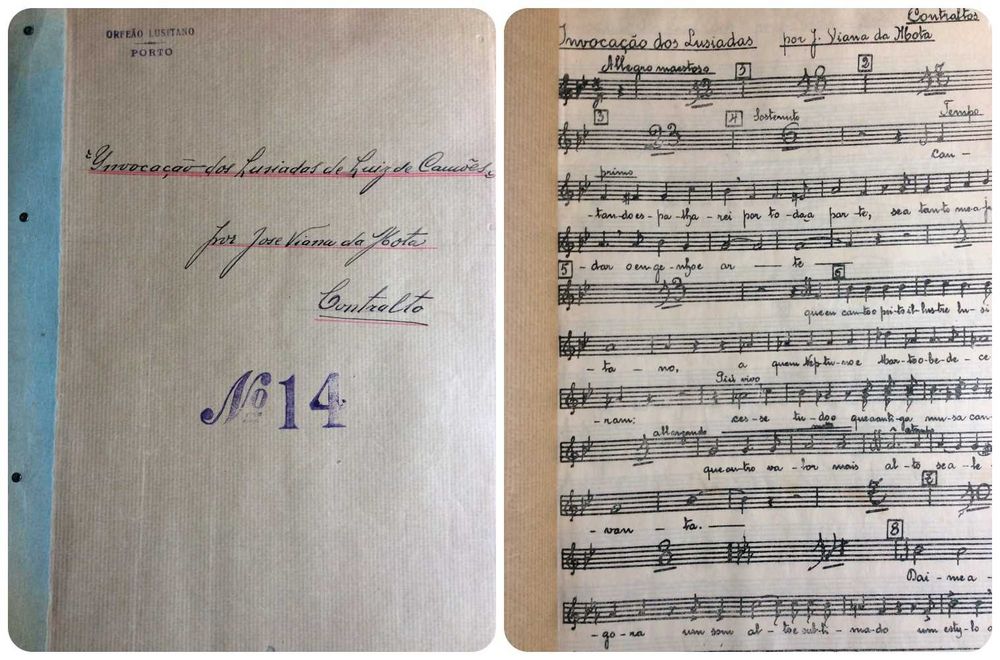 ORFEÃO LUSITANO
PORTO
"Invocação dos Lusiadas de Luiz de Camões"
por José Viana da Mota
Contralto
Nº 14
Contraltos
Invocação dos Lusiadas por J. Viana da Mota
Allegro maestoso 1 2
32 18 17
3 4 Sostenuto Tempo
23 6
Can-
primo
-tando es-pa-lha-rei por to-da a par-te, se a tan-to me a-ju
-dar o en-ge-nho e ar — te —
5 6
13
que eu can-to o pei-to il-lus-tre lu-si
-ta-no, a quem Nep-tu-no e Mar-te o-be-de-ce
Più vivo
-ram: ces-se tu-do o que a anti-ga mu-sa can-
allargando a tempo
que outro va-lor mais al-to se a-le-
7
10
-van-ta. —
8
8
Dai-me a-
-go-ra um som al-to e sub-li-ma-do um esty-lo